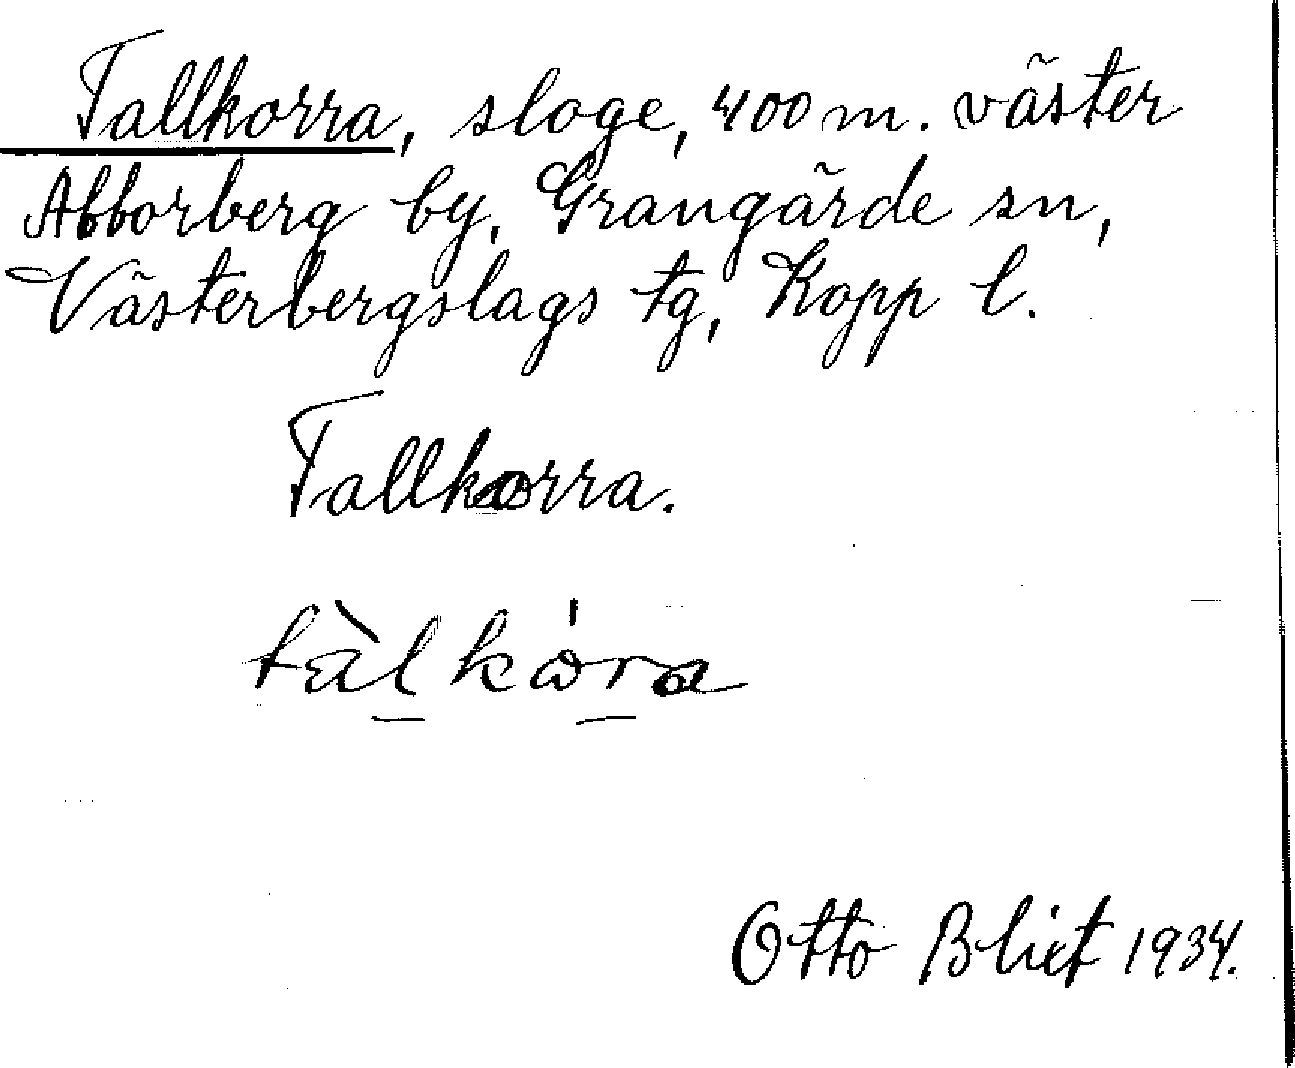 Tallkorra, sloge, 400 m. väster
Abborberg by, Grangärde sn,
Västerbergslags tg, Kopp l.
Tallkorra.
Otto Blixt 1934.